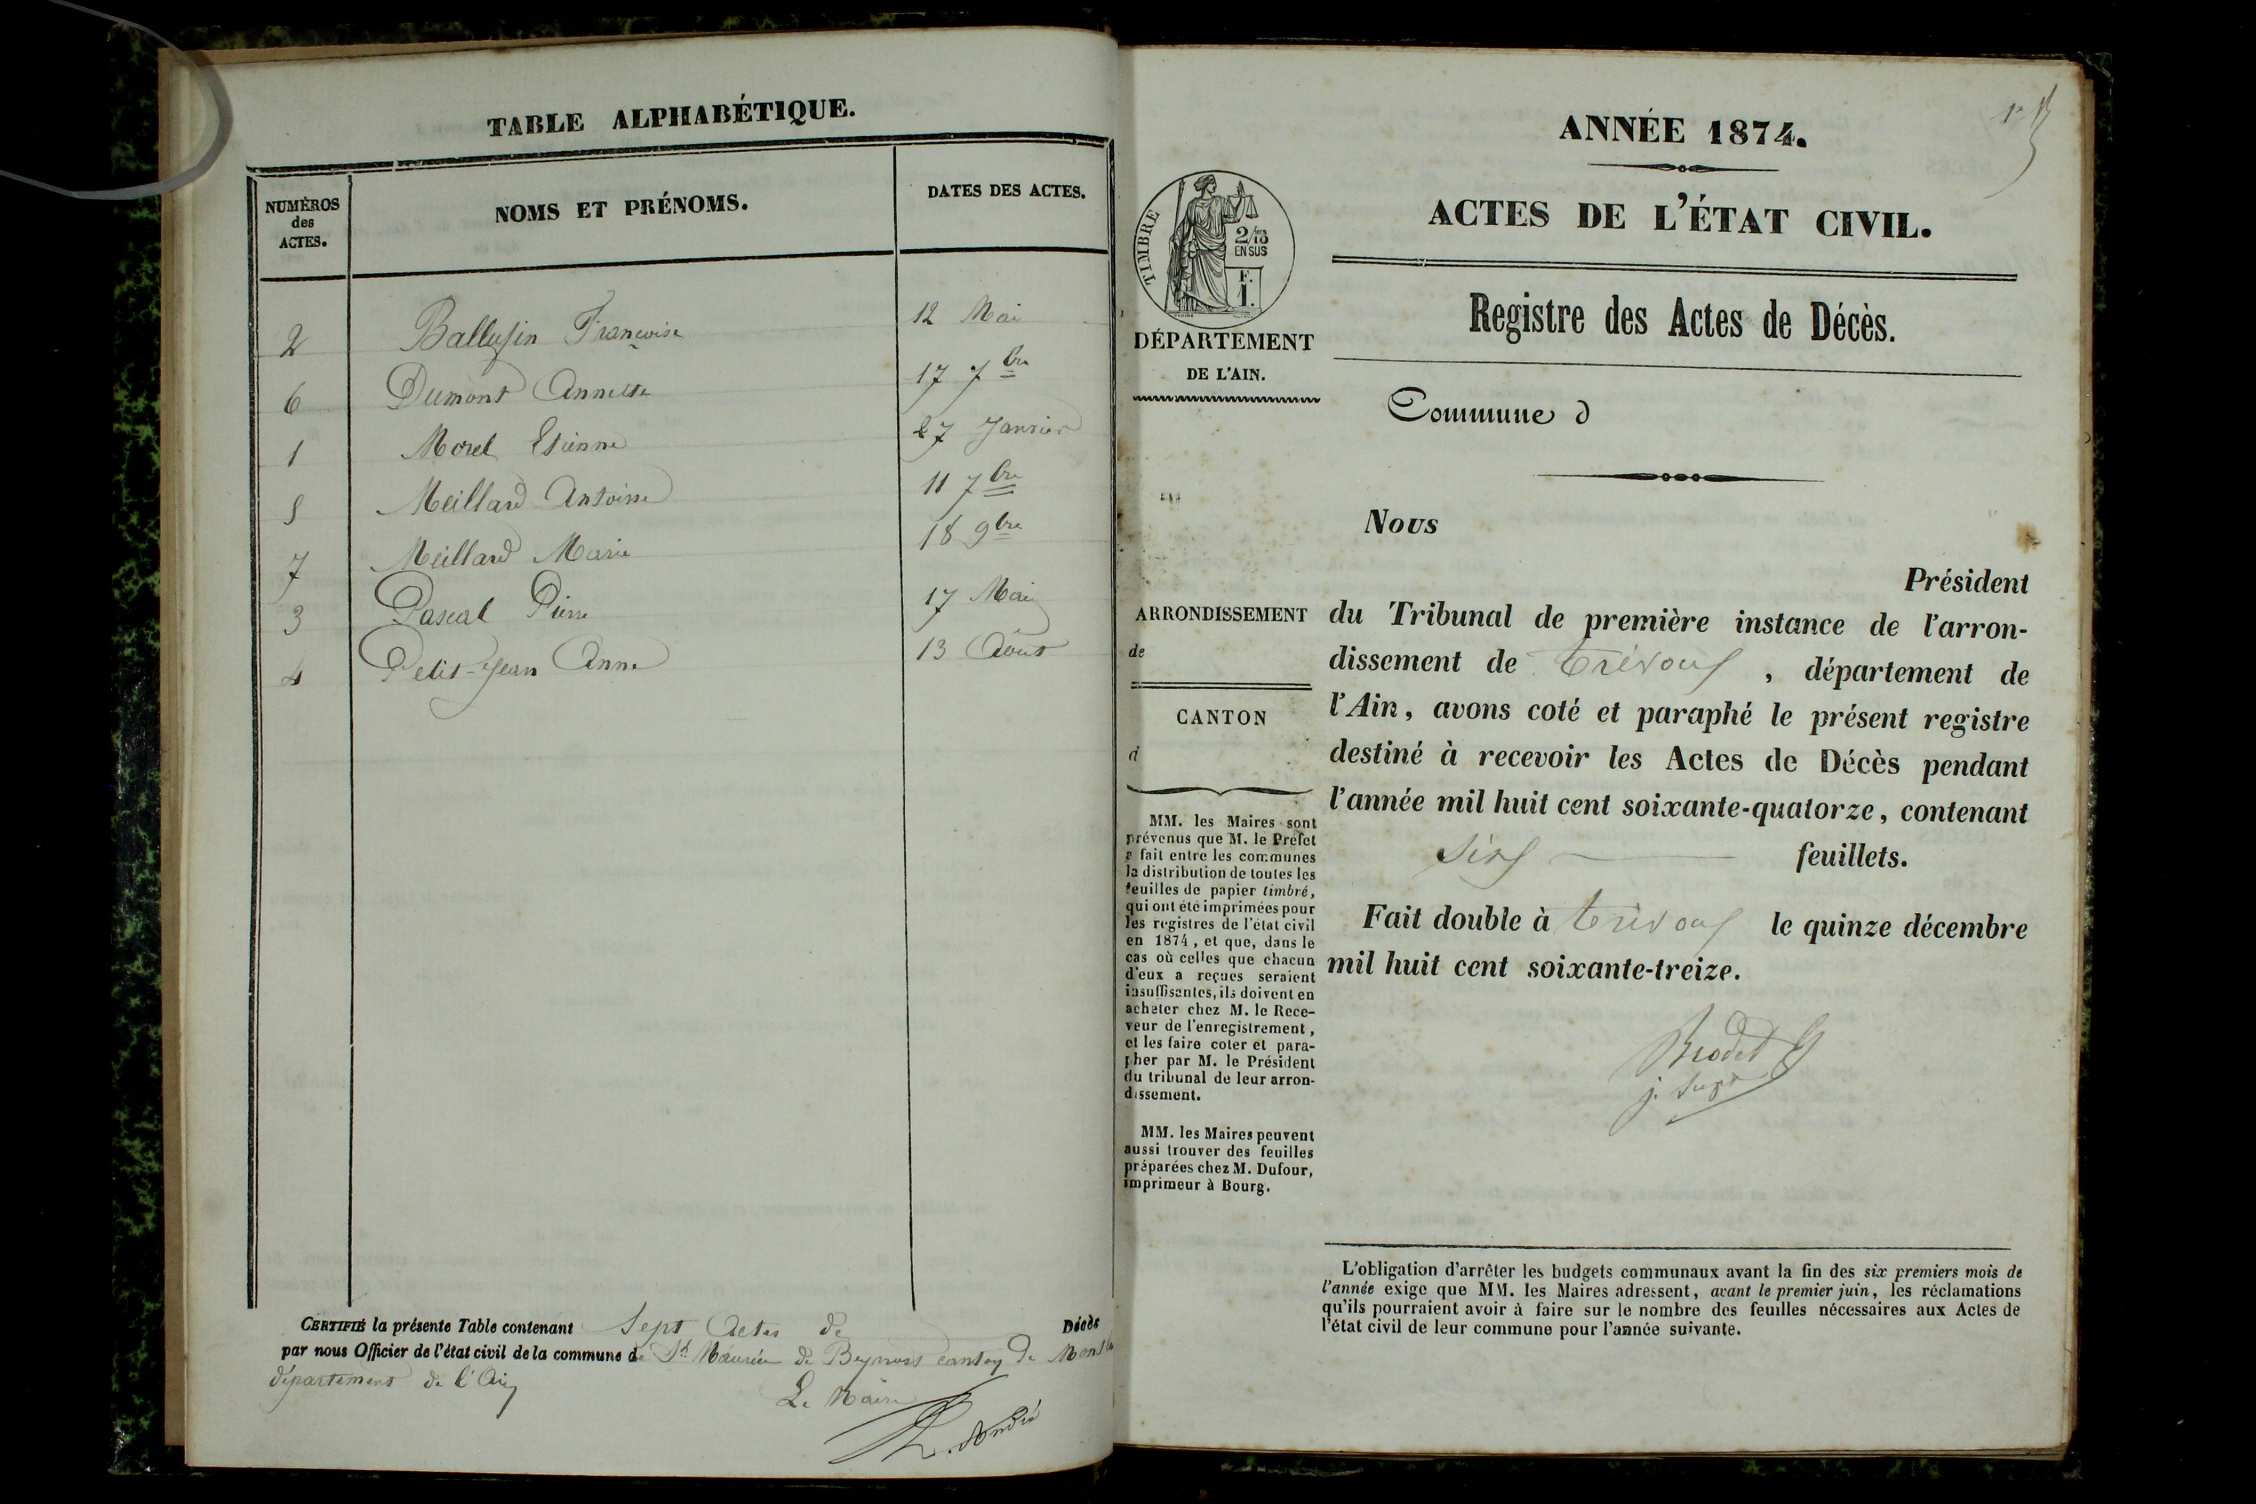 TABLE ALPHABÉTIQUE.
NUMÉROS des ACTES. NOMS ET PRÉNOMS. DATES DES ACTES.
2 Ballufin Françoise 12 Mai
6 Dumont Annette 17 7bre
1 Morel Etienne 27 Janvier
5 Meillard Antoine 11 7bre
7 Meillard Marie 18 9bre
3 Pascal Pierre 17 Mai
4 Petit-Jean Anne 13 Août
CERTIFIÉ la présente Table contenant Sept Actes de Décès
par nous Officier de l'état civil de la commune de St Maurice de Beynost canton de
département de l'Ain
Le Maire
ANNÉE 1874.
ACTES DE L'ÉTAT CIVIL.
TIMBRE
2/10 EN SUS
F. 1.
DÉPARTEMENT
DE L'AIN.
ARRONDISSEMENT
de
CANTON
d
MM. les Maires sont
prévenus que M. le Préfet
a fait entre les communes
la distribution de toutes les
feuilles de papier timbré,
qui ont été imprimées pour
les registres de l'état civil
en 1874, et que, dans le
cas où celles que chacun
d'eux a reçues seraient
insuffisantes, ils doivent en
acheter chez M. le Rece-
veur de l'enregistrement,
et les faire coter et para-
pher par M. le Président
du tribunal de leur arron-
dissement.
MM. les Maires peuvent
aussi trouver des feuilles
préparées chez M. Dufour,
imprimeur à Bourg.
Registre des Actes de Décès.
Commune d
Nous
Président
du Tribunal de première instance de l'arron-
dissement de Trévoux, département de
l'Ain, avons coté et paraphé le présent registre
destiné à recevoir les Actes de Décès pendant
l'année mil huit cent soixante-quatorze, contenant
six feuillets.
Fait double à Trévoux le quinze décembre
mil huit cent soixante-treize.
L'obligation d'arrêter les budgets communaux avant la fin des six premiers mois de
l'année exige que MM. les Maires adressent, avant le premier juin, les réclamations
qu'ils pourraient avoir à faire sur le nombre des feuilles nécessaires aux Actes de
l'état civil de leur commune pour l'année suivante.